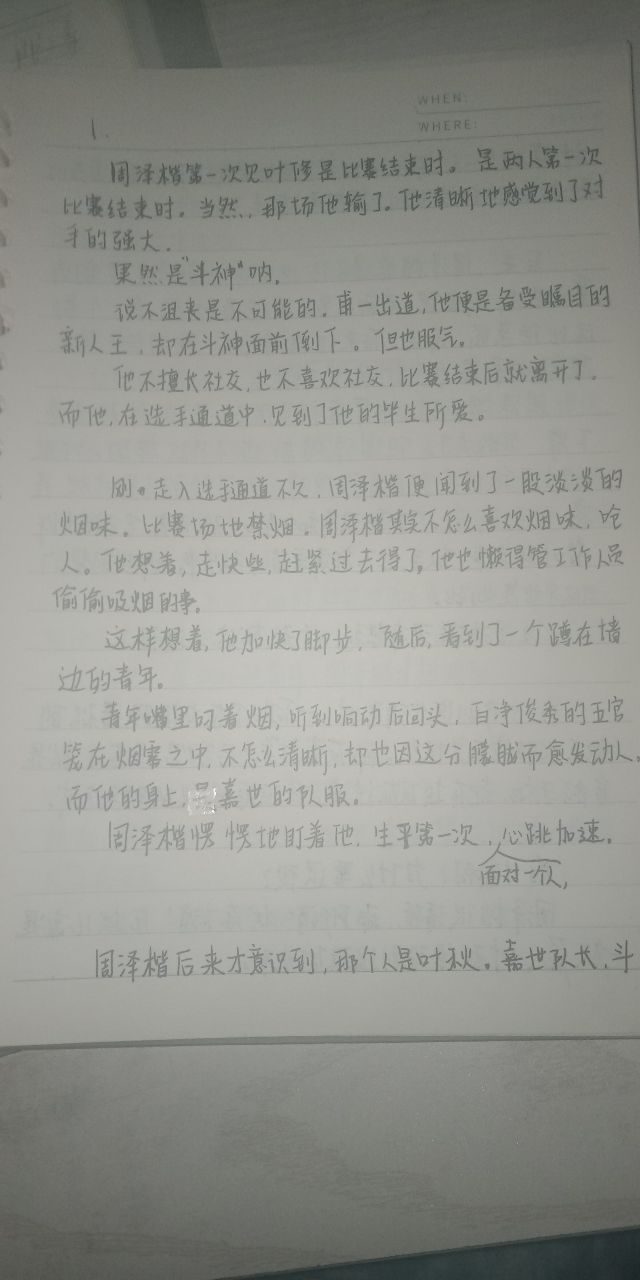 WHEN:
WHERE:
1.
周泽楷第一次见叶修是比赛结束时。是两人第一次
比赛结束时。当然，那场他输了。他清晰地感觉到了对
手的强大。
果然是"斗神"呐。
说不沮丧是不可能的。甫一出道，他便是备受瞩目的
新人王，却在斗神面前倒下。但也服气。
他不擅长社交，也不喜欢社交，比赛结束后就离开了。
而他，在选手通道中，见到了他的毕生所爱。
刚。走入选手通道不久，周泽楷便闻到了一股淡淡的
烟味。比赛场地禁烟。周泽楷其实不怎么喜欢烟味，呛
人。他想着，走快些，赶紧过去得了。他也懒得管工作人员
偷偷吸烟的事。
这样想着，他加快了脚步，随后，看到了一个蹲在墙
边的青年。
青年嘴里叼着烟，听到响动后回头，白净俊秀的五官
笼在烟雾之中，不怎么清晰，却也因这分朦胧而愈发动人。
而他的身上，是嘉世的队服。
周泽楷愣愣地盯着他，生平第一次，心跳加速。
面对一个人，
周泽楷后来才意识到，那个人是叶秋。嘉世队长，斗